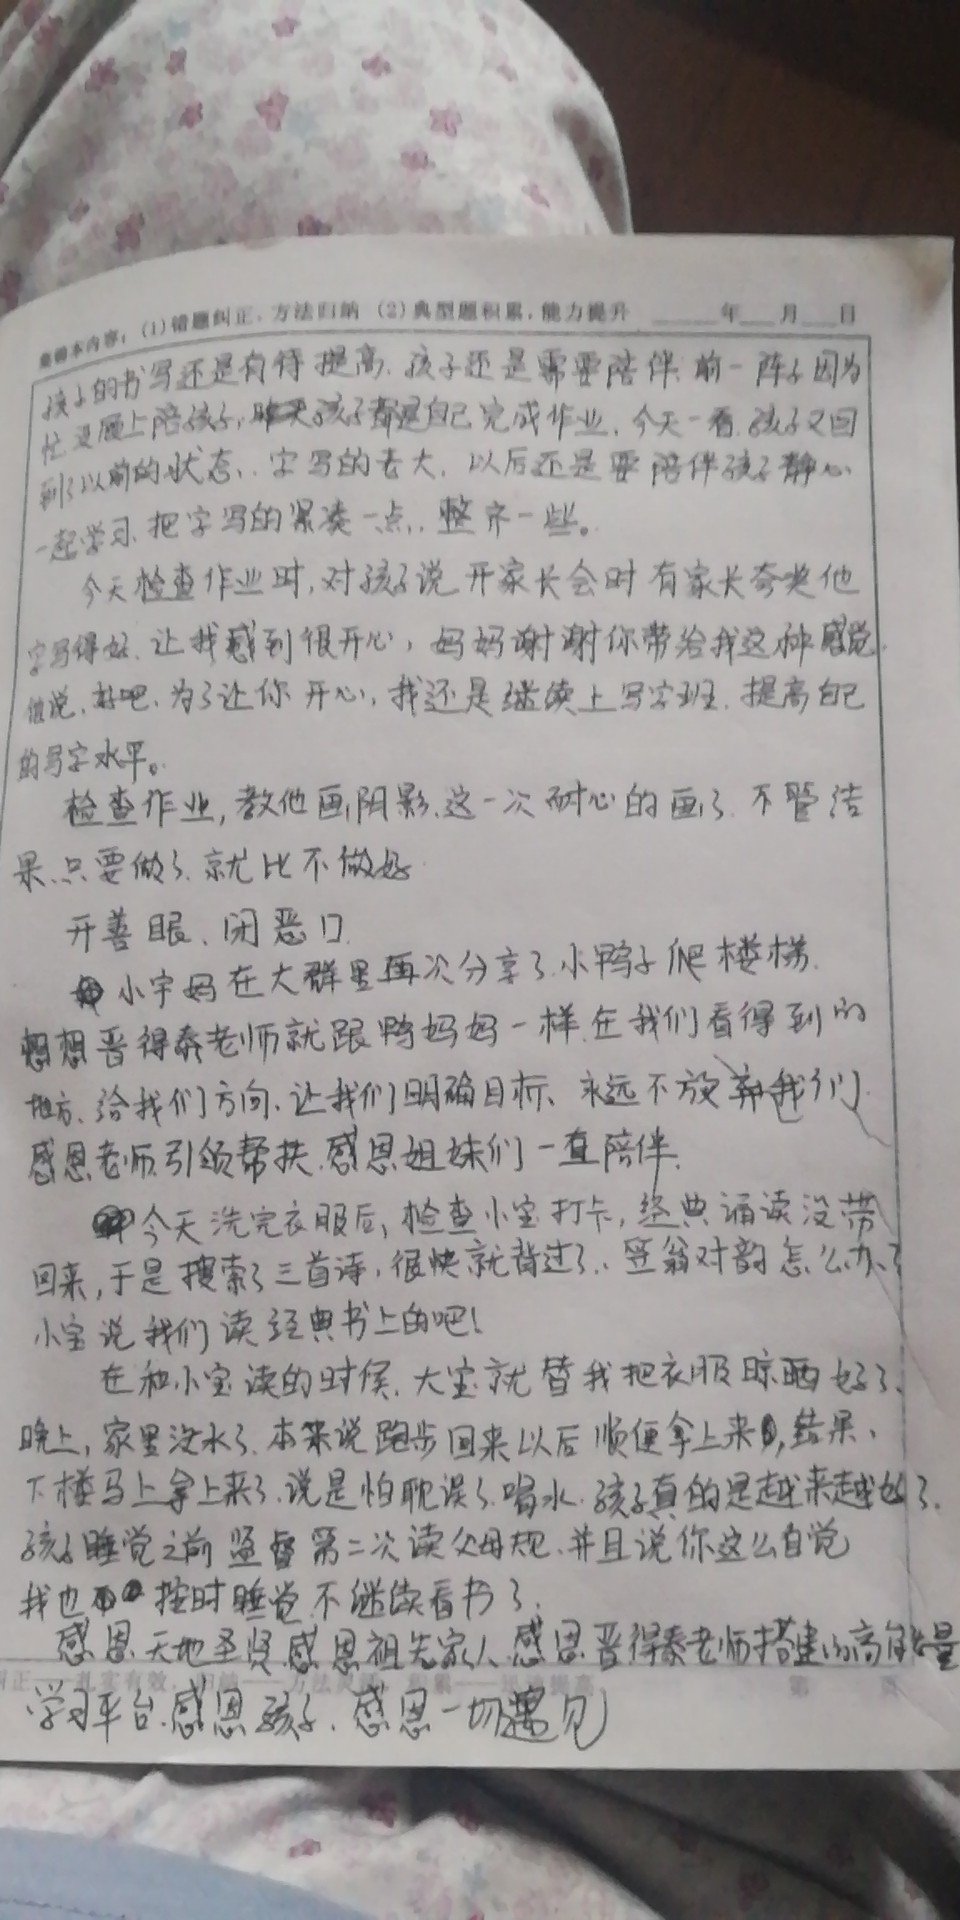 集错本内容：(1)错题纠正，方法归纳 (2)典型题积累，能力提升 ____年___月___日
孩子的书写还是有待提高，孩子还是需要陪伴，前一阵子因为
忙没顾上陪孩子，孩子都是自己完成作业，今天一看，孩子又回
到了以前的状态，字写的老大，以后还是要陪伴孩子静心
一起学习，把字写的紧凑一点，整齐一些。
今天检查作业时，对孩子说开家长会时有家长夸奖他
字写得好，让我感到很开心，妈妈谢谢你带给我这种感觉，
他说，好吧，为了让你开心，我还是继续上写字班，提高自己
的写字水平。
检查作业，教他画阴影，这一次耐心的画了，不管结
果，只要做了，就比不做好
开善眼、闭恶口
小宇妈在大群里再次分享了小鸭子爬楼梯，
想想晋得泰老师就跟鸭妈妈一样在我们看得到的
地方，给我们方向，让我们明确目标，永远不放弃我们，
感恩老师引领帮扶，感恩姐妹们一直陪伴，
今天洗完衣服后，检查小宝打卡，经典诵读没带
回来，于是搜索了三首诗，很快就背过了，笠翁对韵怎么办？
小宝说我们读经典书上的吧！
在和小宝读的时候，大宝就替我把衣服晾晒好了，
晚上，家里没水了，本来说跑步回来以后顺便拿上来，结果，
下楼马上拿上来了，说是怕耽误了喝水，孩子真的是越来越好了，
孩子睡觉之前监督第二次读父母规，并且说你这么自觉
我也按时睡觉不继续看书了，
感恩天地圣贤感恩祖先家人感恩晋得泰老师搭建的高能量
学习平台，感恩孩子，感恩一切遇见